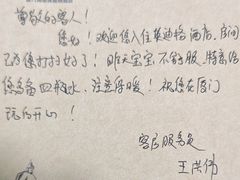 尊敬的客人！
您好！欢迎您入住英迪格酒店，房间
已为您打扫好了！昨天宝宝不舒服，特意给
您多备四瓶水，注意保暖！祝您在厦门
玩的开心！
客房服务员
王洪伟